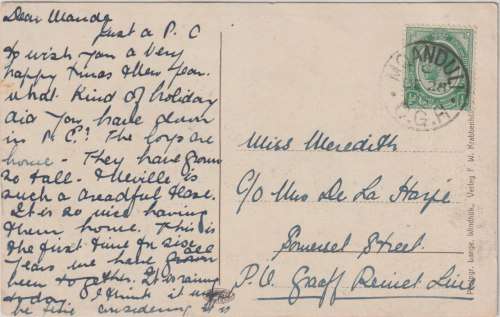 Dear Maude
Just a P.C
to wish you a very
happy Xmas & New Year.
What kind of holiday
did you have down
in P.E? The boys are
home - They have grown
so tall. & Neville is
such a dreadful tease.
It is so nice having
them home. This is
the first time in six
years we have all
been together. It is
today. I think it
be considering
MQANDULI
C.G.H.
Miss Meredith
C/o Mrs De La Harpe
Somerset Street
P.O. Graaff Reinet Line
Photogr. Lange, Windhuk, Verlag F. W.